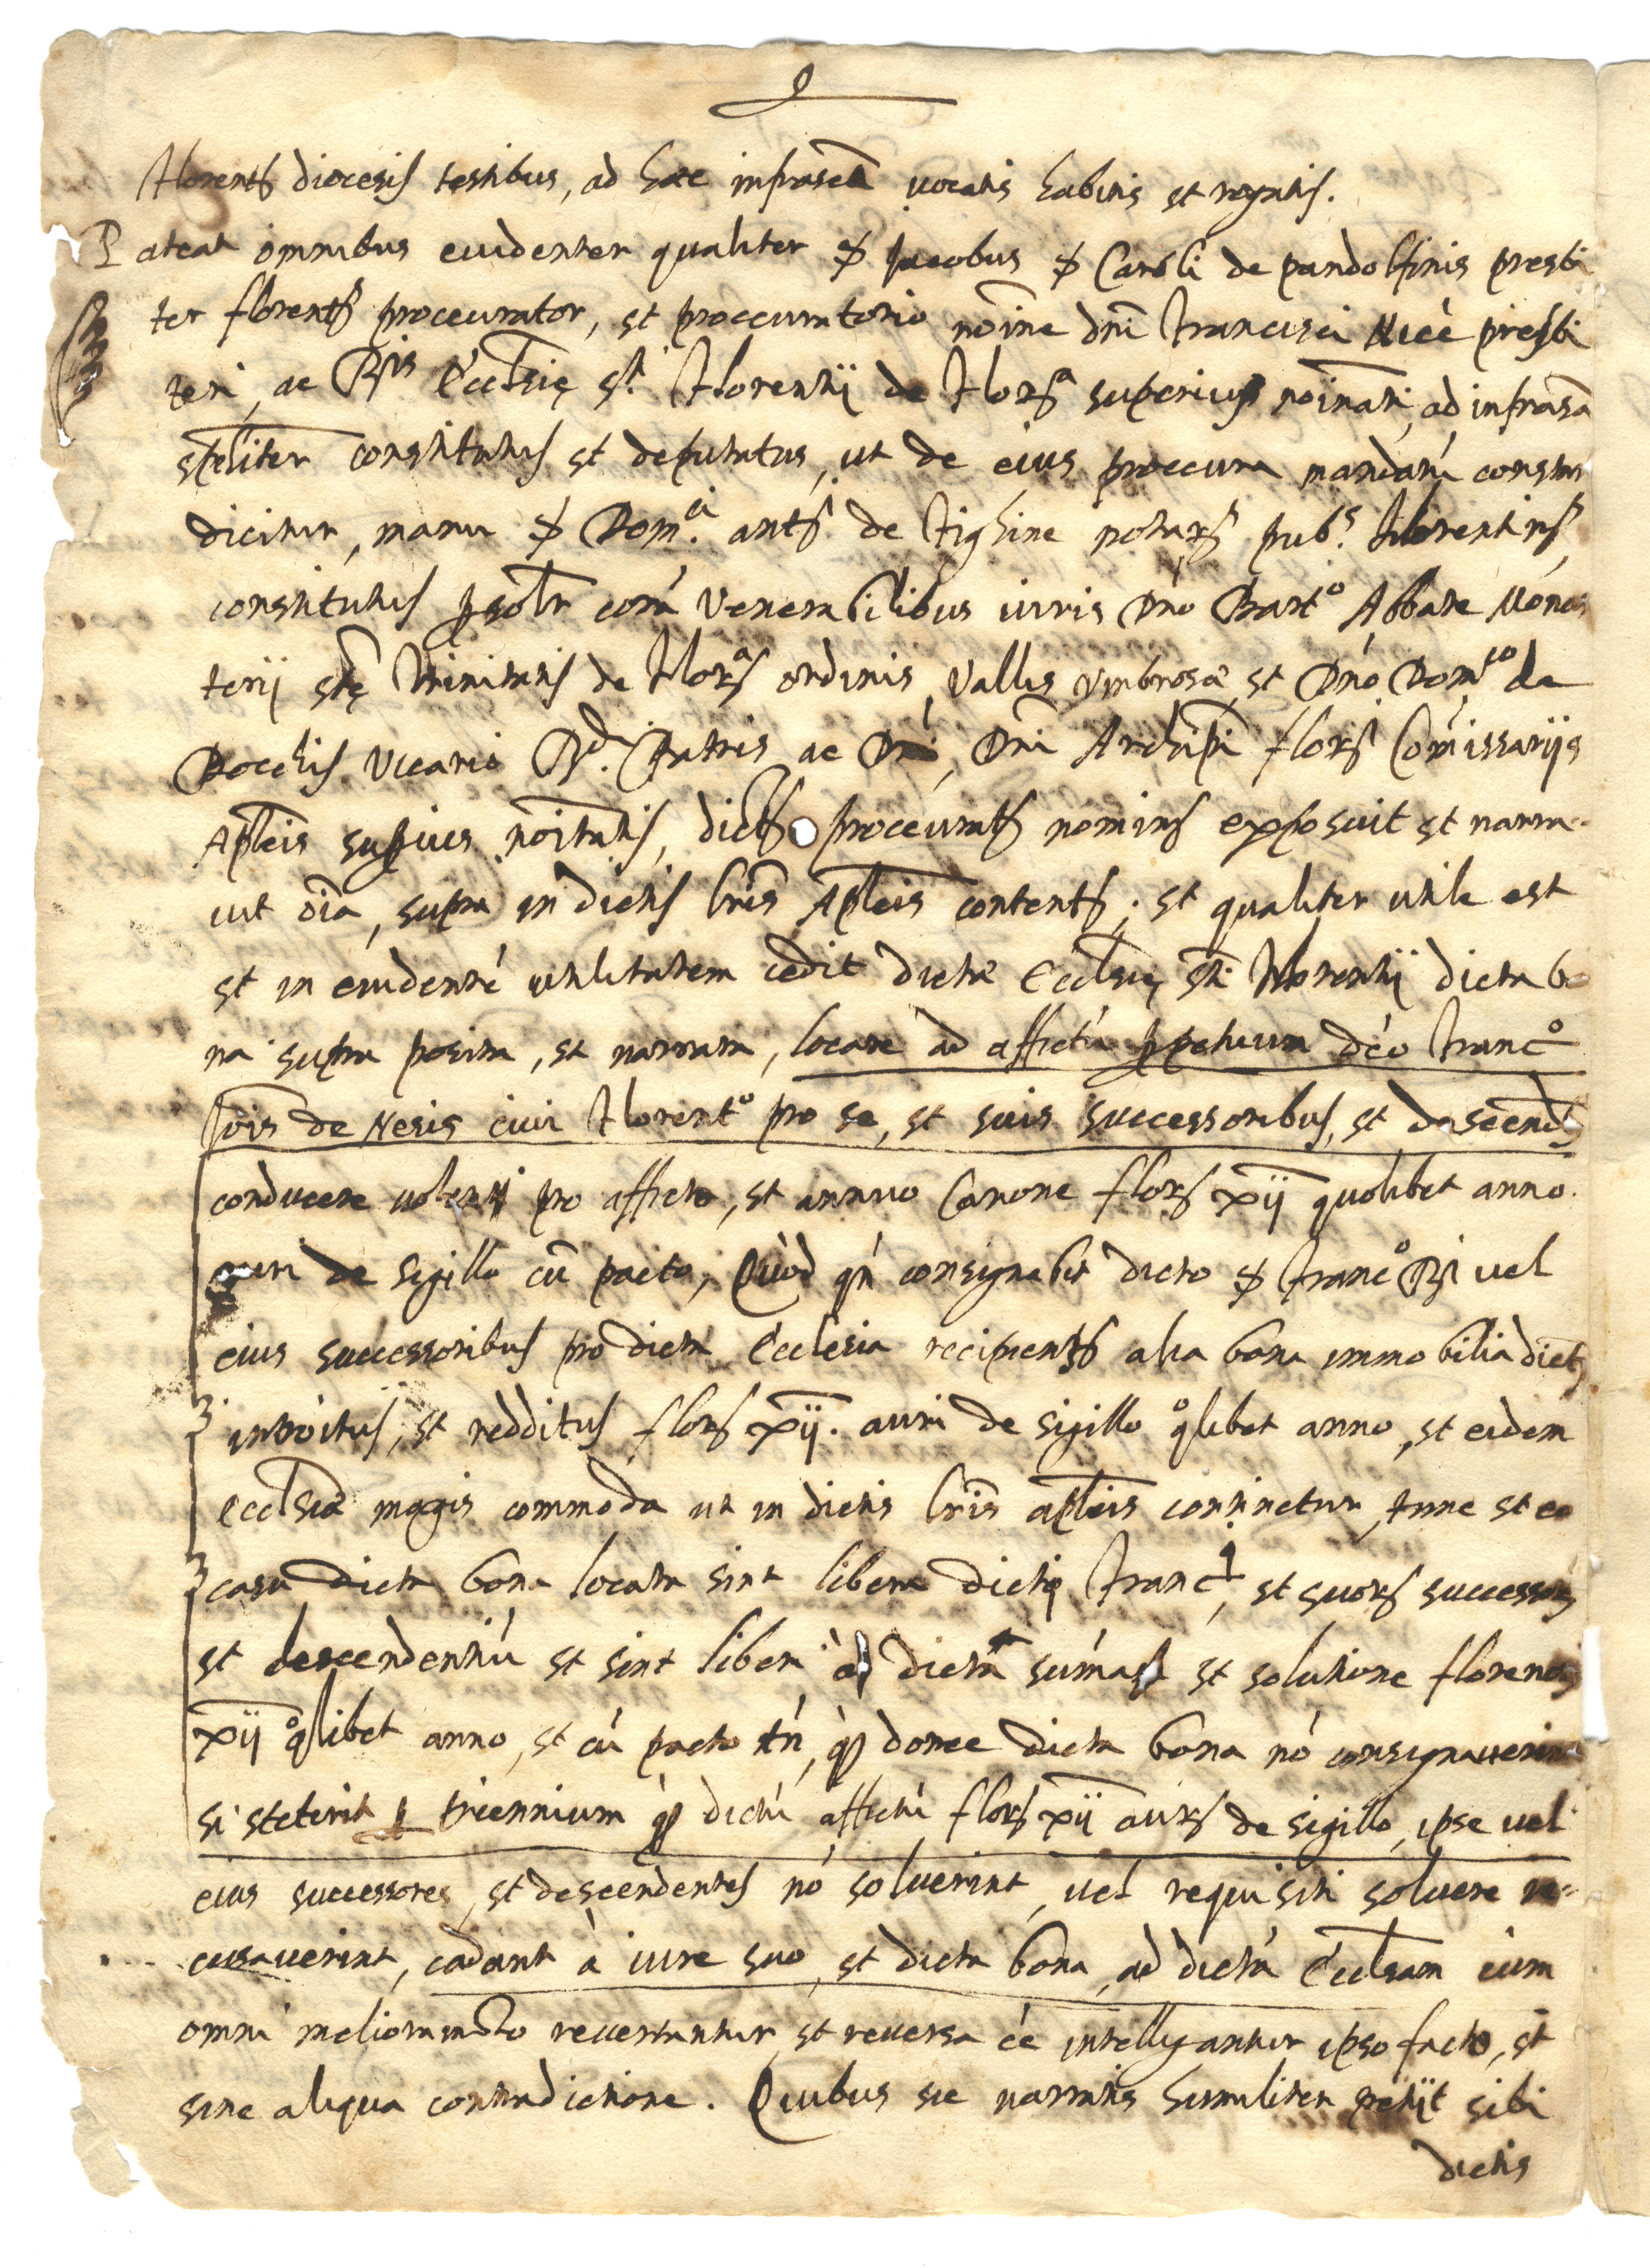 florent. diocesis testibus, ad haec infrascta vocatis habitis et rogatis.
Pateat omnibus euidenter qualiter s. Jacobus s. Caroli de pandolfinis presbi
ter florent. proccurator, et proccuratorio noīne dnī Francisci Nicē presbi
teri, ac Rris Ecclsię Sti Florentij de Flora superius noīnati, ad infrasā
spēliter constitutus et deputatus, ut de eius proccura mandatū constare
dicitur, manu s. Domci ant. de fighine notar. pubc. florentin.
constitutus psolr corā Venerabilibus iuris Dno Barto Abbate Monas
terij stę Trinitatis de flora ordinis Vallis Vmbrosae, et Dno Domco de
Bocchis Vicario Rdi Patris ac Dnī, Dni Archiepi flor. Comissarijs
Aplcis supius noītatis, dict. proccurat. nomin. exposuit et narra-
uit oīa, supra in dictis lris Aplcis content.; et qualiter utile est
et in euidentē utilitatem cedit dictae Ecclsię, sti florentij dicta bo
na supra posita, et narrata, locare ad affictū ppetuum dco Franco
Jois de Nesis ciui florento pro se, et suis successoribus, et descend.
conducere uolenti pro afficto, et annuo Canone flor. xij quolibet anno
auri de sigillo cū pacto, Quòd qn consignabit dicto s. Franco Rri uel
eius successoribus pro dicta Ecclesia recipient. alia bona immobilia dict.
introitus, et redditus flor. xij. auri de sigillo qolibet anno, et eidem
ecclsiae magis commoda ut in dictis lris aplcis continetur, tunc et eo
casu dicta bona locata sint libera dicti Franci, et suor. successor.
et descendentiū et sint liberi à dicta sūma et solutione florenor.
xij qolibet anno, et cū pacto tn, q donec dicta bona nō consignauerint
si steterit p triennium q dictū affictū flor. xij aur. de sigillo, ipse uel
eius successores, et descendentes nō soluerint, uel requisiti soluere re-
cusauerint, cadant à iure suo, et dicta bona, ad dictā Ecclsam cum
omni melioramto reuertantur, et reuersa eē intelligantur ipso facto, et
sine aliqua contradictione. Quibus sic narratis humiliter petijt sibi
dictis